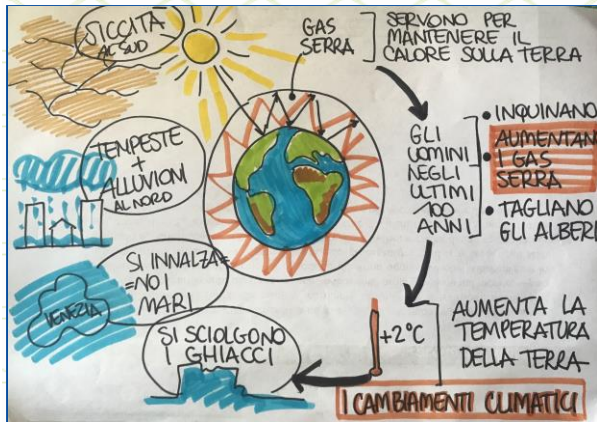 SICCITÀ
AL SUD
GAS
SERRA
SERVONO PER
MANTENERE IL
CALORE SULLA TERRA
GLI
UOMINI
NEGLI
ULTIMI
100
ANNI
• INQUINANO
AUMENTANO
• I GAS
SERRA
• TAGLIANO
GLI ALBERI
TEMPESTE
+
ALLUVIONI
AL NORD
SI INNALZA=
=NO I
MARI
VENEZIA
SI SCIOLGONO
I GHIACCI
+2°C
AUMENTA LA
TEMPERATURA
DELLA TERRA
I CAMBIAMENTI CLIMATICI